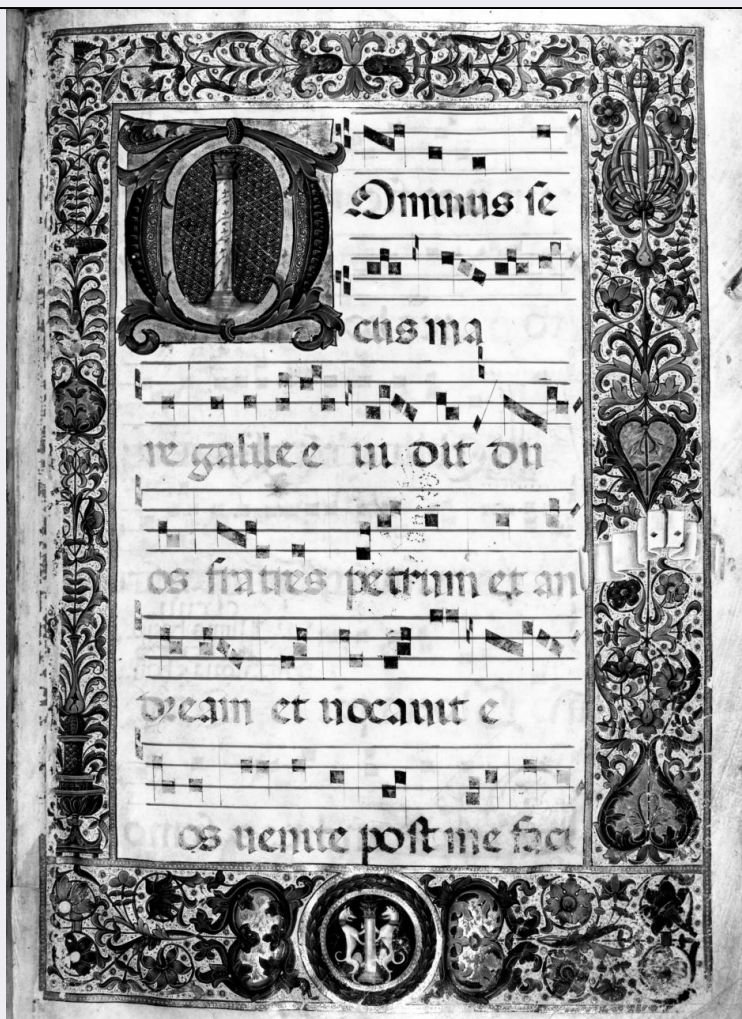 Dominus se
cus ma
re galilee ui dit du
os fratres petrum et an
dream et uocauit e
os uenite post me faci